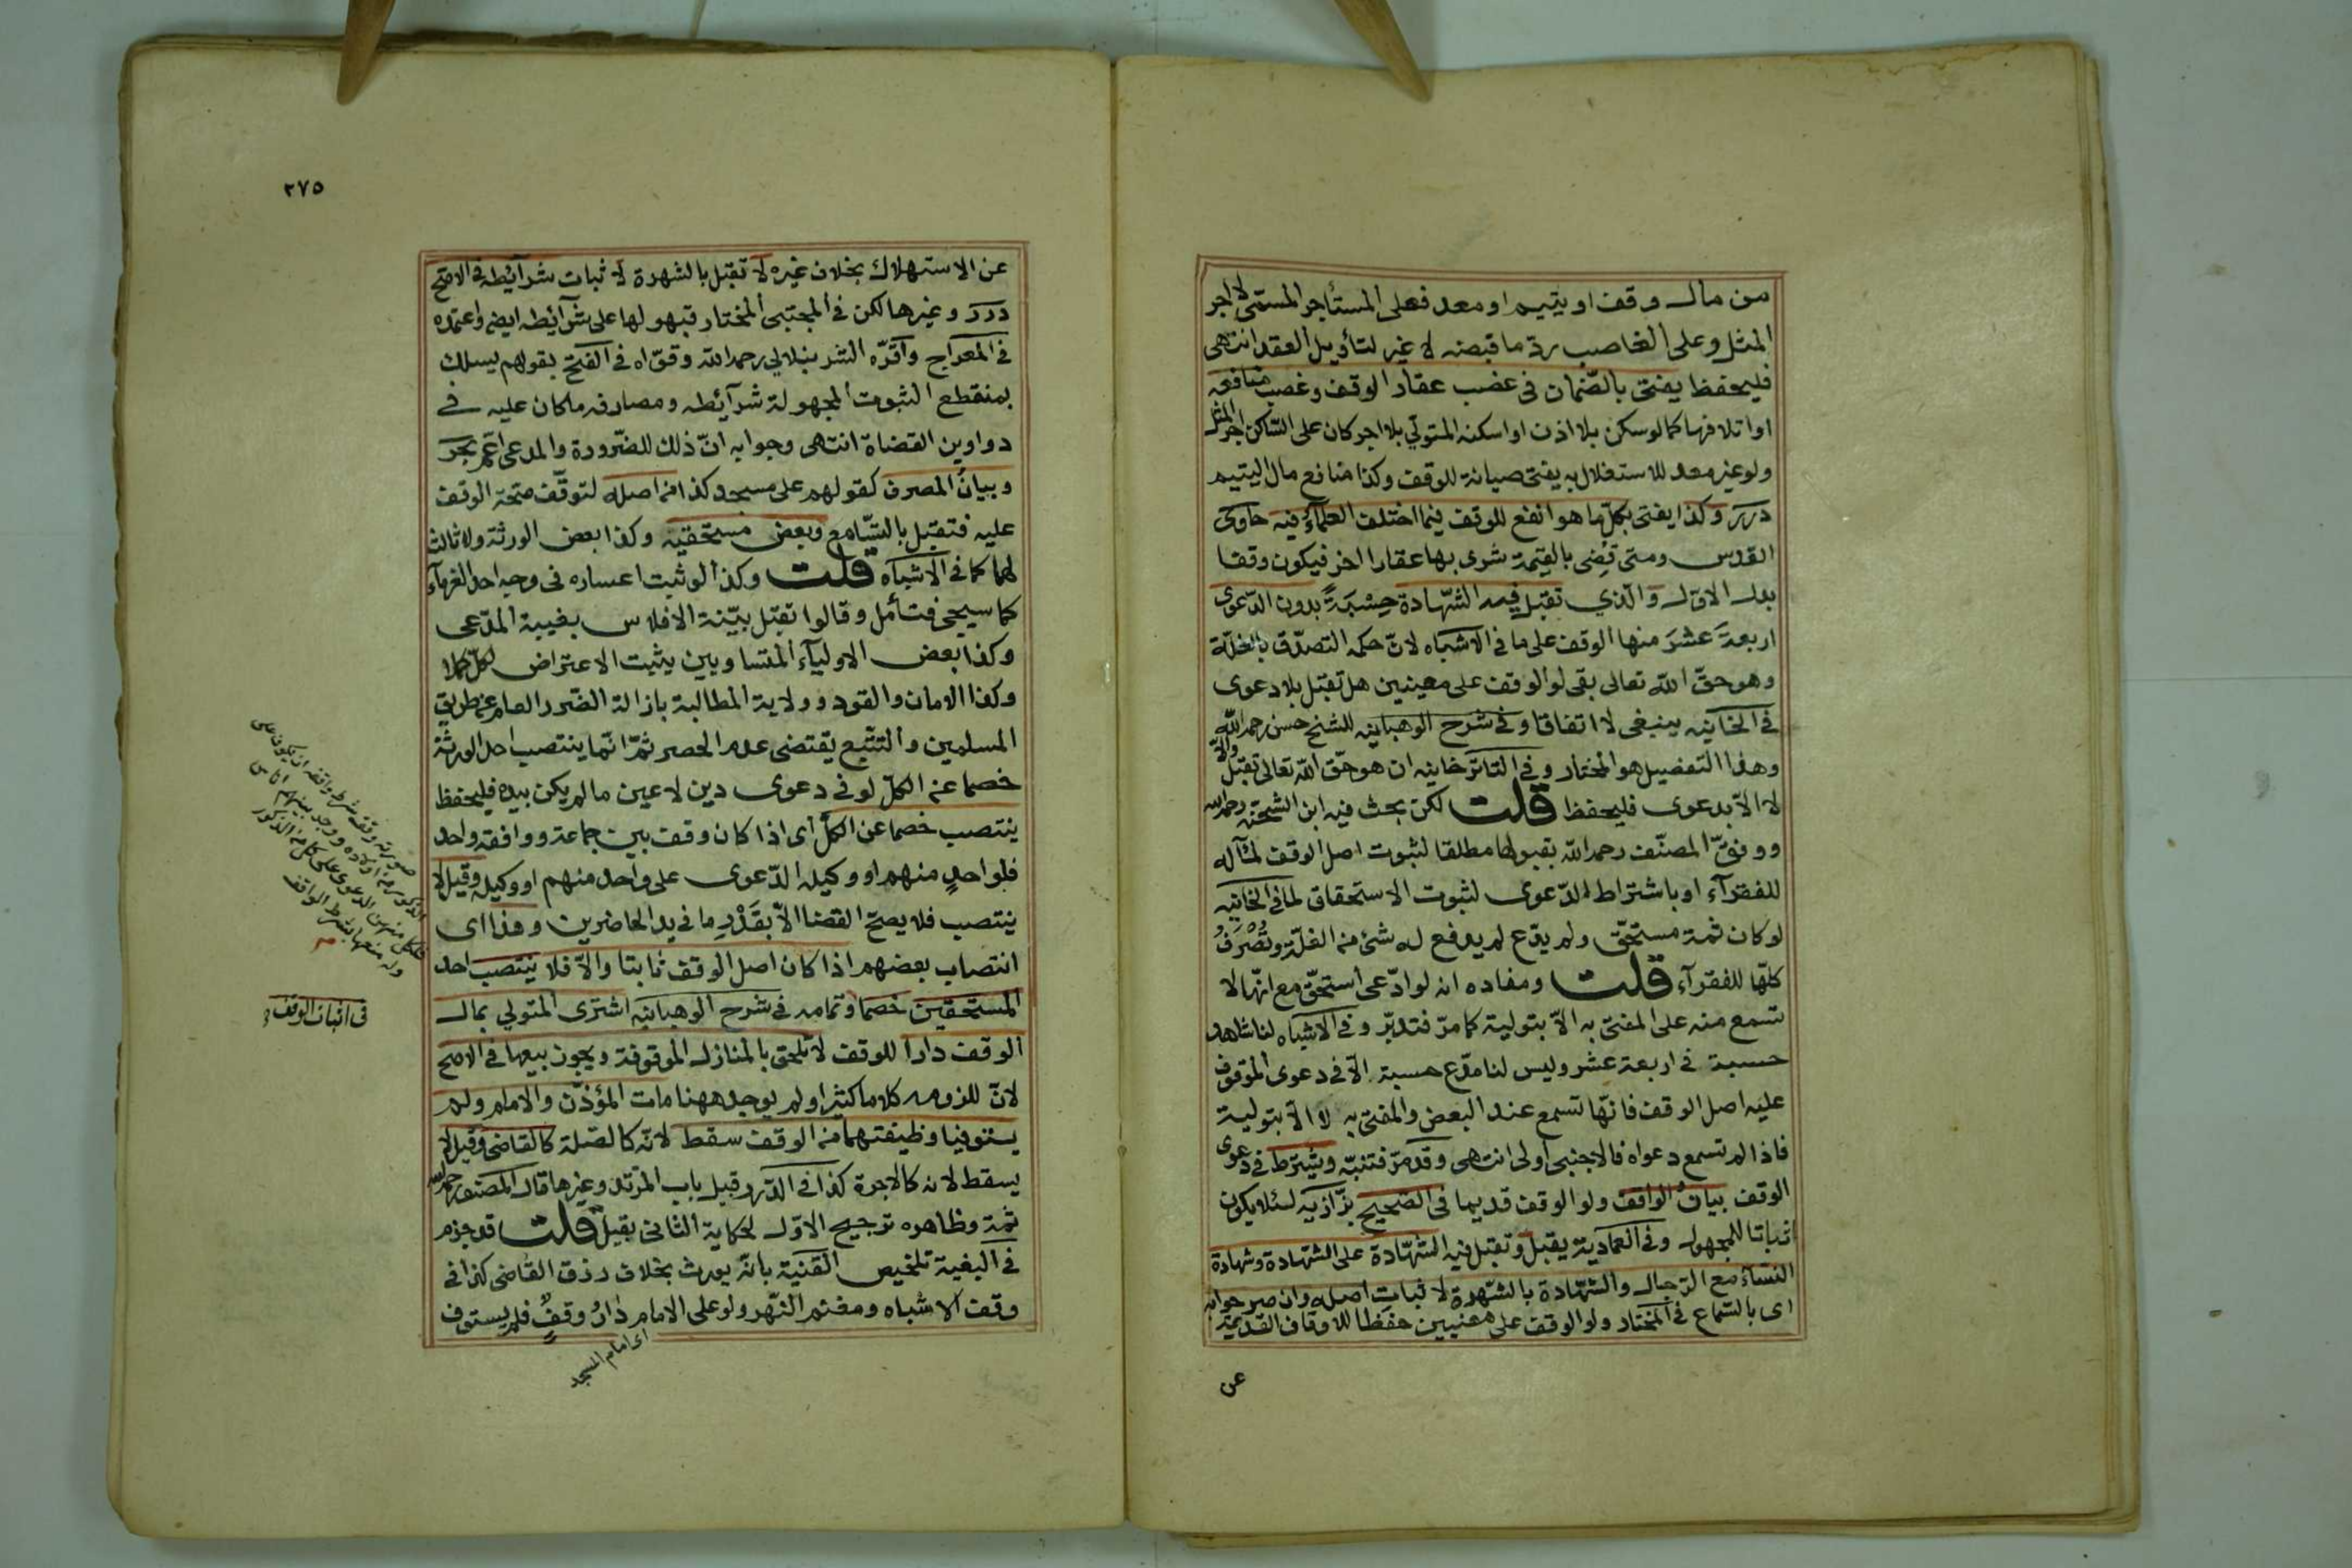 من مال وقف او يتيم او معد فعلى المستأجر المسمى لا اجر
المثل وعلى الغاصب ردّ ما قبضه لا غير لتأويل العقد انتهى
فليحفظ يفتى بالضّمان فى غصب عقار الوقف وغصب منافعه
او اتلافها كما لو سكن بلا اذن او اسكنه المتولّي بلا اجر كان على السّاكن اجر المثل
ولو غير معد للاستغلال به يفتى صيانة للوقف وكذا منافع مال اليتيم
درر وكذا يفتى بكلّ ما هو انفع للوقف فيما اختلف العلماء فيه حاوى
القدس ومتى قضى بالقيمة شرى بها عقارا اخر فيكون وقفا
بدل الاوّل والّذي تقبل فيه الشّهادة حِسْبَةً بدون الدّعوى
اربعةَ عشرَ منها الوقف على ما فى الاشباه لانّ حكمه التصدّق بالغلّة
وهو حقّ اللّه تعالى بقى لو الوقف على معينين هل تقبل بلا دعوى
فى الخانيه ينبغى لا اتفاقا وفى شرح الوهبانيه للشيخ حسن رحمه اللّه
وهذا التفصيل هو المختار وفى التاترخانيه ان هو حقّ اللّه تعالى تقبل والّا
لا الّا بدعوى فليحفظ قلت لكن بحث فيه ابن الشحنه رحمه الله
ووفّق المصنّف رحمه اللّه بقبولها مطلقا لثبوت اصل الوقف لمآله
للفقرآء او باشتراط الدّعوى لثبوت الاستحقاق لما فى الخانيه
لو كان ثمة مستحقّ ولم يدّع لم يدفع له شئ من الغلّة وتُصْرَفُ
كلّها للفقرآء قلت ومفاده انه لو ادّعى استحقّ مع انّها لا
تسمع منه على المفتى به الّا بتولية كما مرّ فتدبّر وفى الاشباه لنا شاهد
حسبة فى اربعة عشر وليس لنا مدّع حسبة الّا فى دعوى الموقوف
عليه اصل الوقف فانّها تسمع عند البعض والمفتى به لا الّا بتولية
فاذا لم تسمع دعواه فالاجنبى اولى انتهى وقد مرّ فتنبّه ويشترط فى دعوى
الوقف بيان الواقف ولو الوقف قديما فى الصّحيح بزّازيه لئلا يكون
اثباتا للمجهول وفى العمادية يقبل وتقبل فيه الشّهادة على الشّهادة وشهادة
النسآء مع الرّجال والشّهادة بالشّهرة لاثبات اصله وان صرحوا به
اى بالسّماع فى المختار ولو الوقف على معنيين حفظا للاوقاف القديمة
عن
٢٧٥
عن الاستهلاك بخلاف غيره لا تقبل بالشهرة لاثبات شرآئطه فى الاصح
درر وغيرها لكن فى المجتبى المختار قبولها على شرآئطه ايضا واعتمده
فى المعراج واقرّه الشرنبلالي رحمه اللّه وقوّاه فى الفتح بقولهم يسلك
بمنقطع الثبوت المجهولة شرآئطه ومصارفه ما كان عليه فى
دواوين القضاة انتهى وجوابه انّ ذلك للضّرورة والمدعى اعم بحر
وبيان المصرف كقولهم على مسجد كذا من اصله لتوقّف صحّة الوقف
عليه فتقبل بالتّسامع وبعض مستحقيه وكذا بعض الورثة ولا ثالث
لهما كما فى الاشباه قلت وكذا لو ثبت اعساره فى وجه احد الغرمآء
كما سيجى فتأمل وقالوا تقبل بيّنة الافلاس بغيبة المدّعى
وكذا بعض الاوليآء المتساويين يثبت الاعتراض لكلّ كملا
وكذا الامان والقود وولاية المطالبة بازالة الضّرر العام عن طريق
المسلمين والتتبّع يقتضى عدم الحصر ثمّ انّما ينتصب احد الورثة
خصما عن الكلّ لو فى دعوى دين لا عين ما لم يكن بيده فليحفظ
ينتصب خصما عن الكلّ اى اذا كان وقف بين جماعة وواقفه واحد
فلو احدٍ منهم او وكيله الدّعوى على واحد منهم او وكيله وقيل لا
ينتصب فلا يصحّ القضا الّا بقَدْرِ ما فى يد الحاضرين وهذا اى
انتصاب بعضهم اذا كان اصل الوقف ثابتا والّا فلا ينتصب احد
المستحقين خصما وتمامه فى شرح الوهبانيه اشترى المتولي بمال
الوقف دارا للوقف لا تلحق بالمنازل الموقوفة ويجوز بيعها فى الاصح
لانّ للزومه كلاما كثيرا ولم يوجد ههنا مات المؤذّن والامام ولم
يستوفيا وظيفتهما من الوقف سقط لانّه كالصّلة كالقاضى وقيل لا
يسقط لانه كالاجرة كذا فى الدّرر قبيل باب المرتد وغيرها قال المصنف رحمه الله
ثمة وظاهره ترجيح الاوّل لحكاية الثانى بقيل قلت قد جزم
فى البغية تلخيص القنية بانّه يورث بخلاف رزق القاضى كذا فى
وقف الاشباه ومغنم النّهر ولو على الامام دارُ وقفٍ فلم يستوف
اى امام المسجد
صورته وقف شرط واقفه ان يكون على
الذكور من اولاده ووجد بينهم اناس
فلكل منهن الدعوى على كل من الذكور
وله منعها بشرط الواقف
فى اثبات الوقف